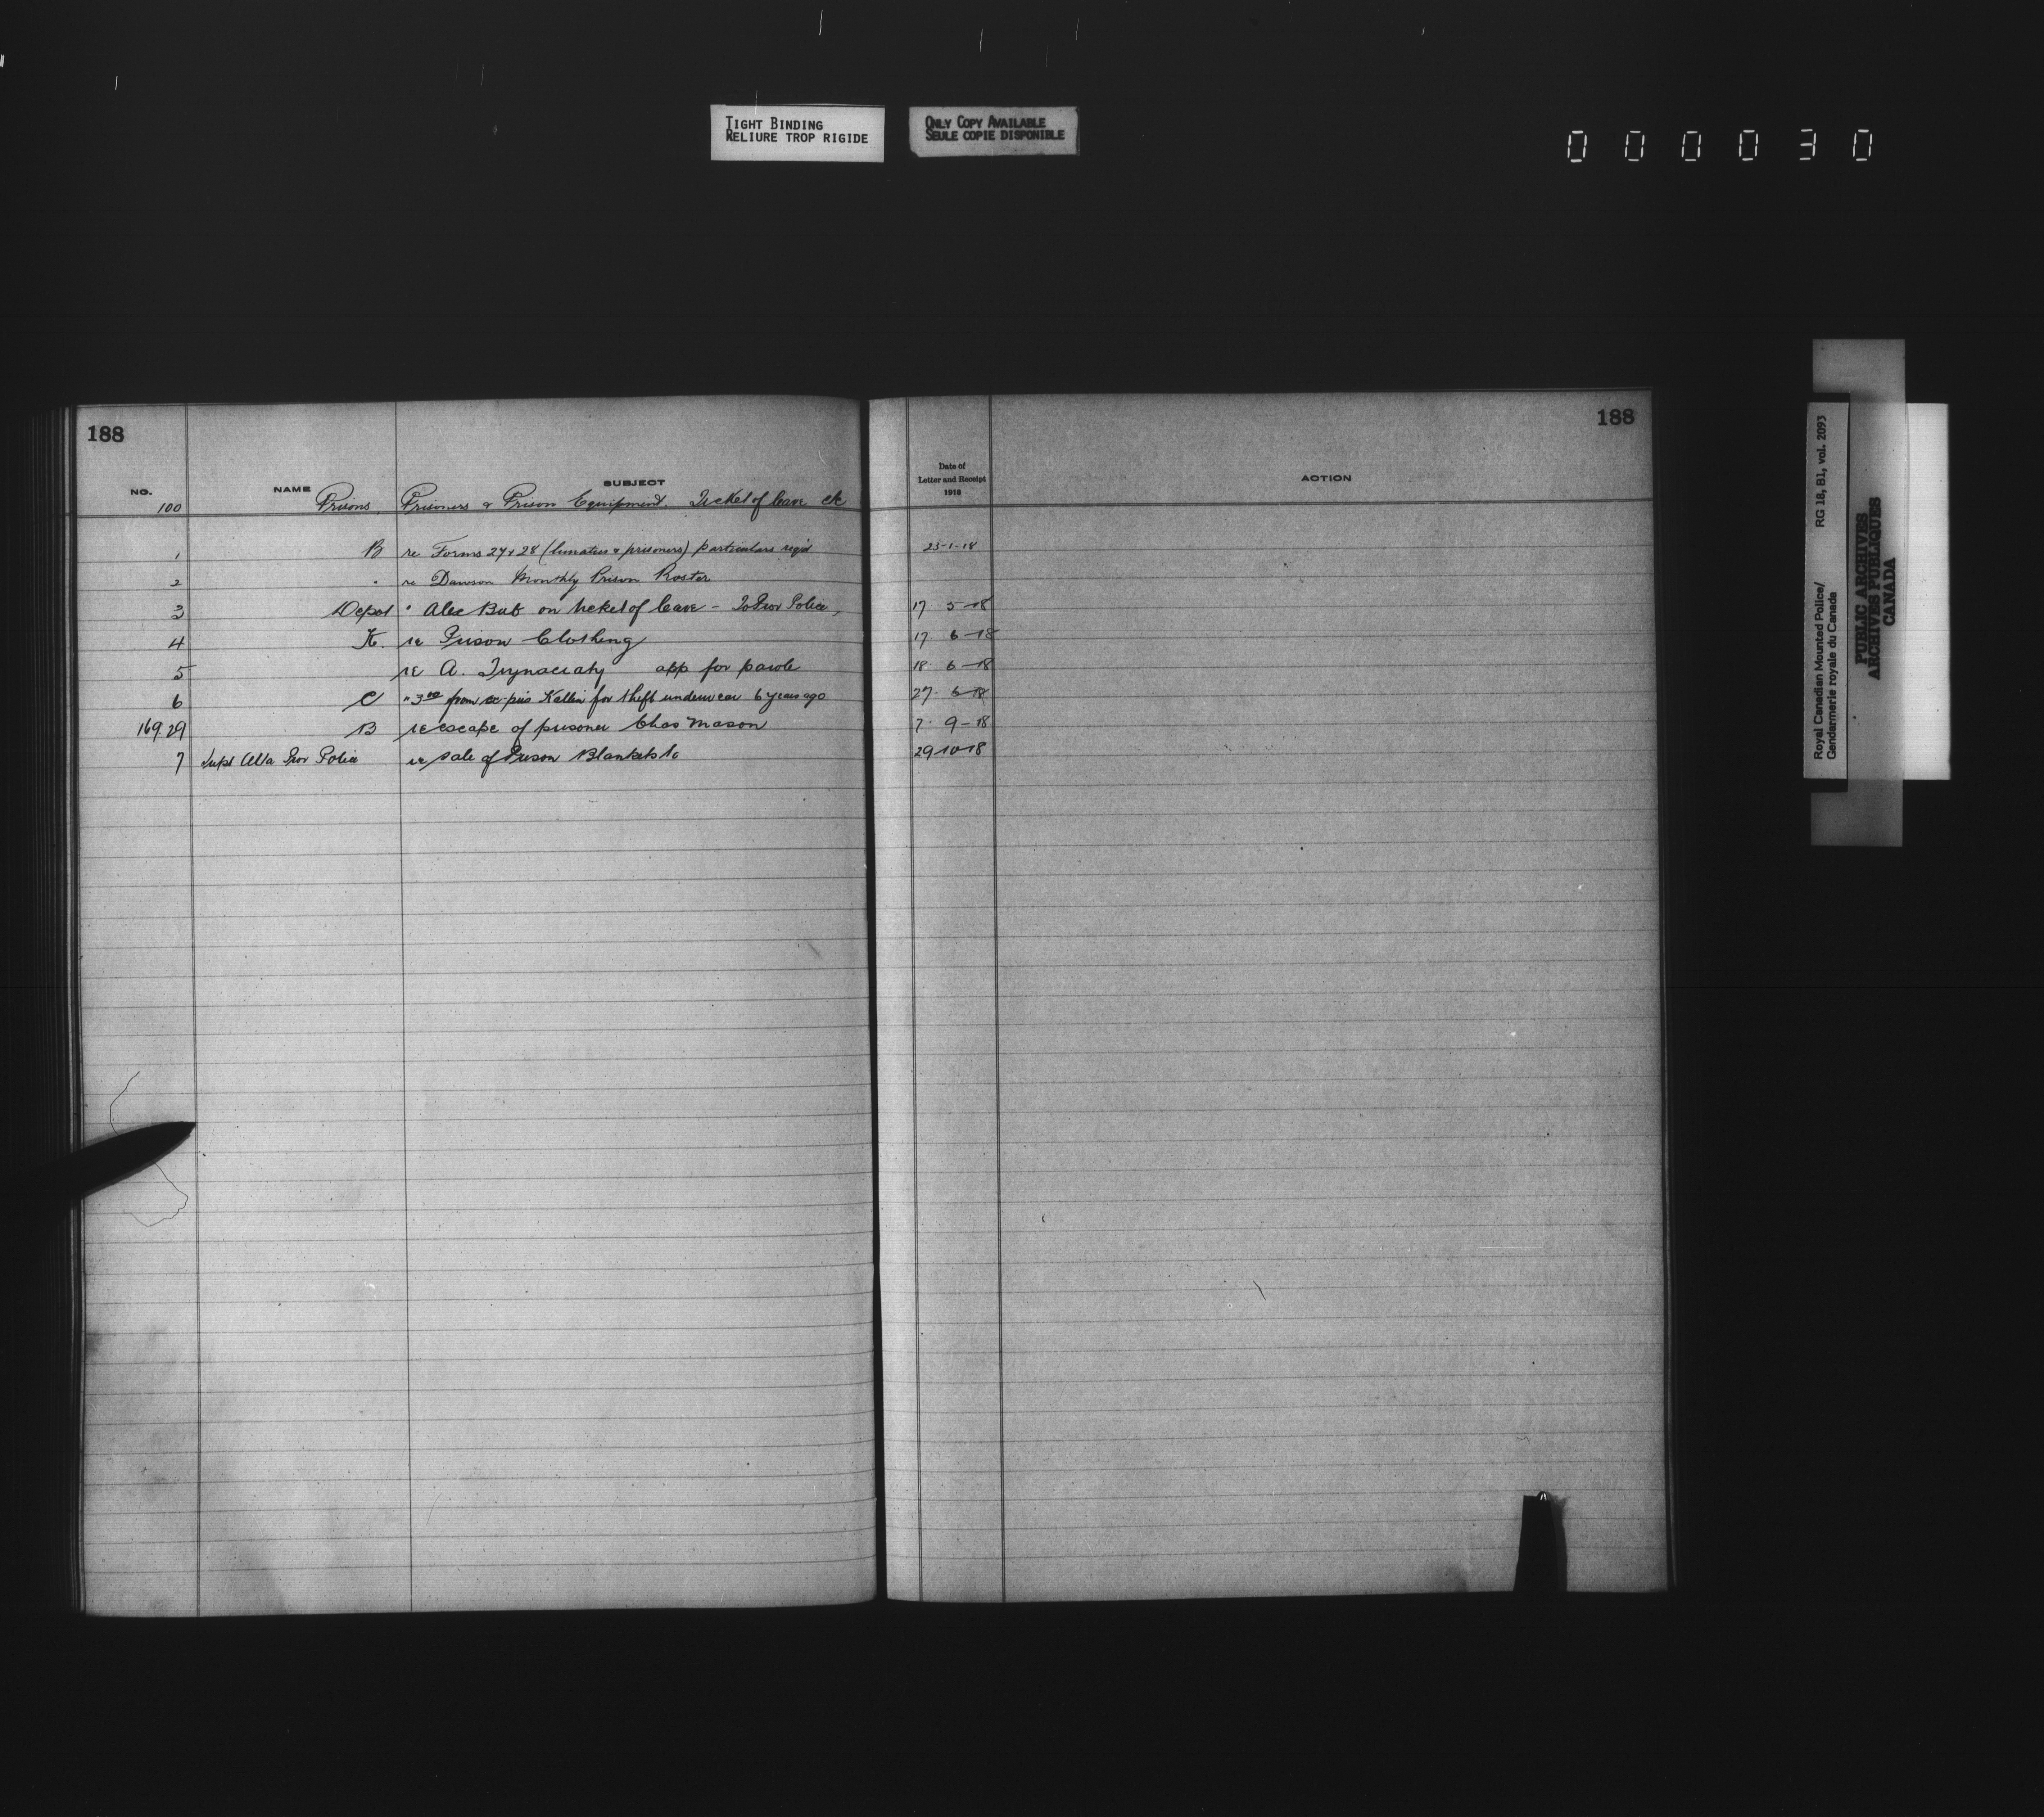 TIGHT BINDING
RELIURE TROP RIGIDE
ONLY COPY AVAILABLE
SEULE COPIE DISPONIBLE
000030
188
188
NO. NAME SUBJECT Date of Letter and Receipt 1918 ACTION
100 Prisons, Prisoners & Prison Equipment. Ticket of leave etc
1 B re Forms 27 & 28 (lunatics & prisoners) particulars req'd 23-1-18
2 " re Dawson Monthly Prison Roster
3 Depot " Alec Bub on ticket of leave - To Prov Police, 17 5-18
4 K. re Prison Clothing 17 6-18
5 re A. app for parole 18 6-18
6 C " from ex-pris for theft underwear 6 years ago 27. 6-18
169.29 B re escape of prisoner Chas Mason 7. 9-18
7 Supt Alta Prov Police re sale of Prison Blankets to 29-10-18
Royal Canadian Mounted Police/ RG 18, B1, vol. 2093
Gendarmerie royale du Canada
PUBLIC ARCHIVES
ARCHIVES PUBLIQUES
CANADA